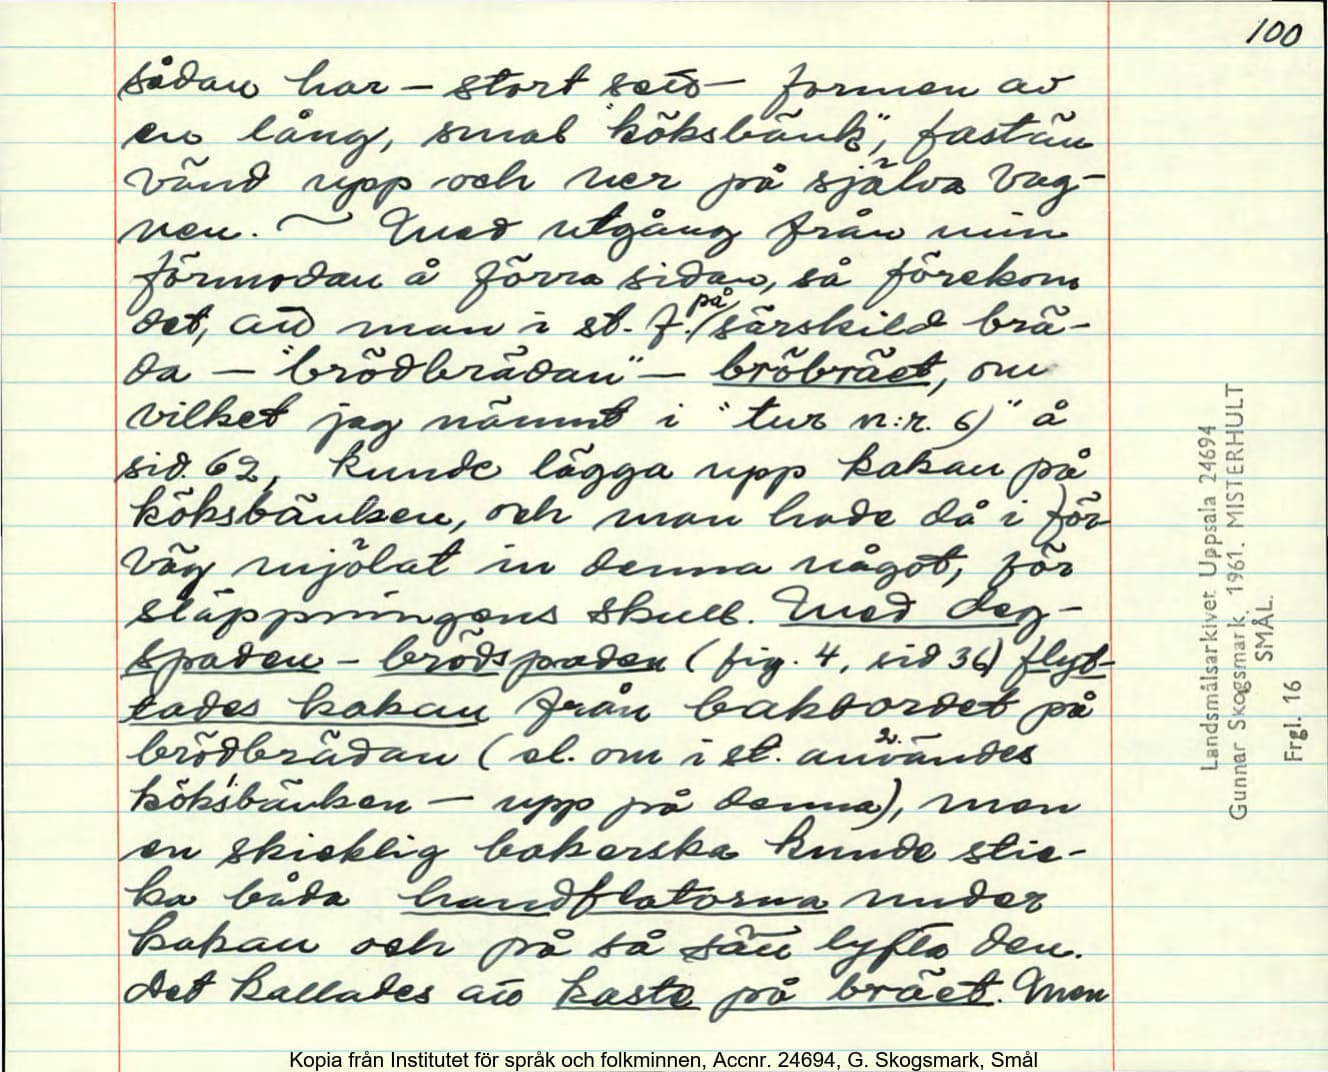 100
sådan har — stort sett — formen av
en lång, smal "köksbänk", fastän
vänd upp och ner på själva vag-
nen. ~ Med utgång från min
förmodan å förra sidan, så förekom
det, att man i st. f. på särskild brä-
da — "brödbrädan" — bröbräet, om
vilket jag nämnt i "tur n:r. 6)" å
sid. 62, kunde lägga upp kakan på
köksbänken, och man hade då i för
väg mjölat in denna något, för
släppningens skull. Med deg-
spaden - brödspaden (fig. 4, sid 36) flyt-
tades kakan från bakbordet på
brödbrädan (el. om i st. användes
köksbänken — upp på denna), men
en skicklig bakerska kunde stic-
ka båda handflatorna under
kakan och på så sätt lyfta den.
Det kallades att kaste på bräet. Men
Landsmålsarkivet Uppsala 24694
Gunnar Skogsmark. 1961. MISTERHULT
SMÅL.
Frgl. 16
Kopia från Institutet för språk och folkminnen, Accnr. 24694, G. Skogsmark, Smål